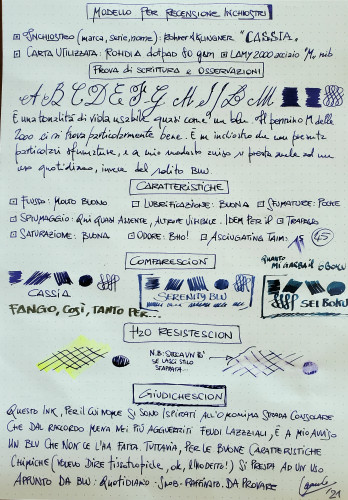 Modello Per Recensione Inchiostri
Inchiostro (marca, serie, nome): Rohrer & Klingner "CASSIA"
Carta Utilizzata: Rohdia dotpad 80 gsm Lamy 2000 acciaio M nib
Prova di scrittura e osservazioni
A B C D E F G H I L M
È una tonalità di viola usabile quasi come un blu. Il pennino M della
2000 ci si trova particolarmente bene. È un inchiostro che non permette
particolari sfumature, e a mio modesto avviso si presta anche ad un
uso quotidiano, invece del solito blu.
Caratteristiche
Flusso: Molto Buono Lubrificazione: Buona Sfumature: Poche
Spiumaggio: Qui quasi assente, altrove visibile. Idem per il Trapasso
Saturazione: Buona Odore: Bho! Asciugatura Taim: 15 (45)
Comparescion
CASSIA
SERENITY BLU
quanto mi garba il
SEI BOKU
FANGO, così, TANTO PER...
H2O Resistescion
N.B: Secca un pò
se lasci stilo
stappata...
Giudichescion
Questo ink, per il cui nome si sono ispirati all'omonima strada consolare
che dal raccordo mena nei più agguerriti feudi lazziali, è a mio avviso
un blu che non ce l'ha fatta. Tuttavia, per le buone caratteristiche
chimiche (volevo dire tissotropiche, ok, l'ho detto!) si presta ad un uso
appunto da blu: quotidiano. Snob. Raffinato. Da provare
'21